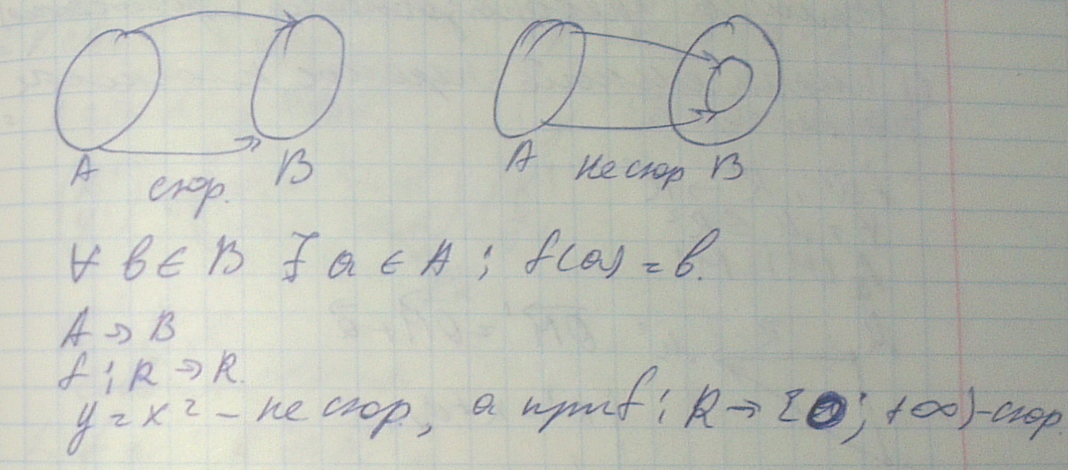 A сюр. B
A не сюр B
∀ b ∈ B ∃ a ∈ A ; f(a) = b.
A → B
f ; R → R.
y = x² - не сюр, а при f : R → [0; +∞) - сюр.